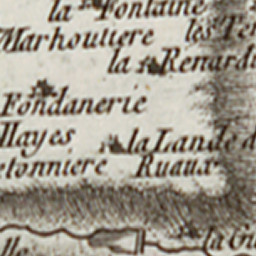 la Fontaine
Marhoutiere les Te
la Renardi
Fondanerie
Hayes la Lande d
etonniere Ruaux
lle la Gu